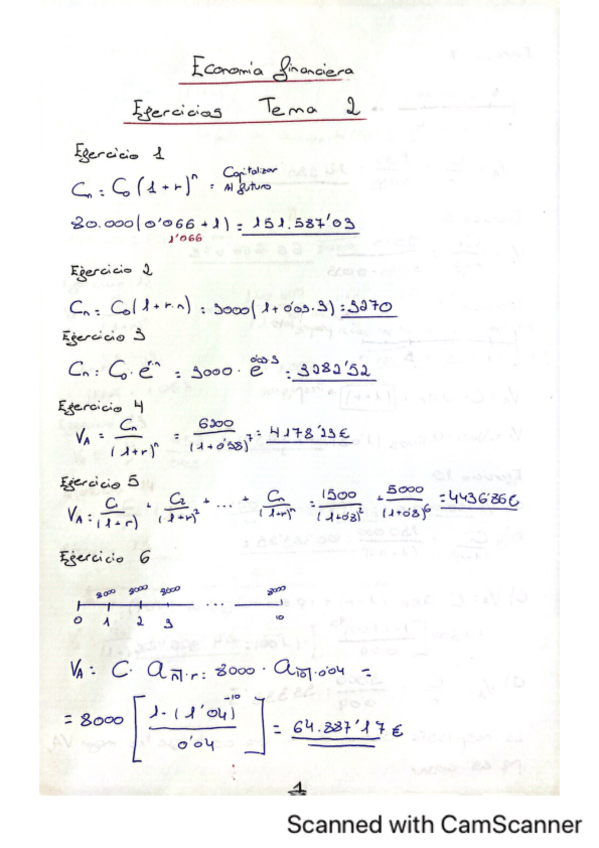 Economía financiera
Ejercicios Tema 2
Ejercicio 1
Cn = C0 (1 + r)^n = Capitalizar Al futuro
80.000 (0'066 + 1) = 151.587'03
1'066
Ejercicio 2
Cn = C0 (1 + r·n) = 3000 (1 + 0'03·3) = 3270
Ejercicio 3
Cn = C0 · e^r·n = 3000 · e^0'03·3 = 3282'52
Ejercicio 4
VA = Cn / (1+r)^n = / = 4178'23€
Ejercicio 5
VA = C1 / (1+r) + C2 / (1+r)^2 + ... + Cn / (1+r)^n = 1500 / + 5000 / = 4436'86€
Ejercicio 6
8000 8000 8000 8000
0 1 2 3 ... 10
VA = C · a n¬ · r = 8000 · a 10¬ · 0'04 =
= 8000 [ 1 - (1'04)^-10 / 0'04 ] = 64.887'17 €
1
Scanned with CamScanner